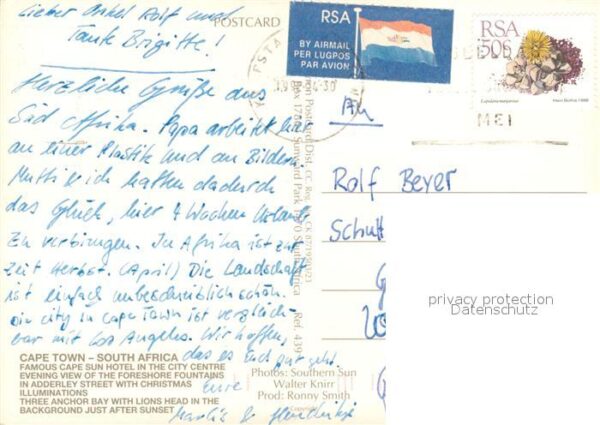 Lieber Onkel Rolf und
Tante Brigitte!
Herzliche Grüße aus
Süd Afrika. Papa arbeitet hier
an einer Plastik und an Bildern.
Mutti & ich hatten dadurch
das Glück, hier 4 Wochen Urlaub
zu verbringen. In Afrika ist zur
Zeit Herbst. (April) Die Landschaft
ist einfach unbeschreiblich schön.
Die City in Cape Town ist vergleich-
bar mit Los Angeles. Wir hoffen,
das es Euch gut geht.
Eure
POSTCARD
RSA
BY AIRMAIL
PER LUGPOS
PAR AVION
RSA
50c
MEI
An
Rolf Beyer
Schutt
privacy protection
Datenschutz
Ref. 439
CAPE TOWN – SOUTH AFRICA
FAMOUS CAPE SUN HOTEL IN THE CITY CENTRE
EVENING VIEW OF THE FORESHORE FOUNTAINS
IN ADDERLEY STREET WITH CHRISTMAS
ILLUMINATIONS
THREE ANCHOR BAY WITH LIONS HEAD IN THE
BACKGROUND JUST AFTER SUNSET
Photos: Southern Sun
Walter Knirr
Prod: Ronny Smith